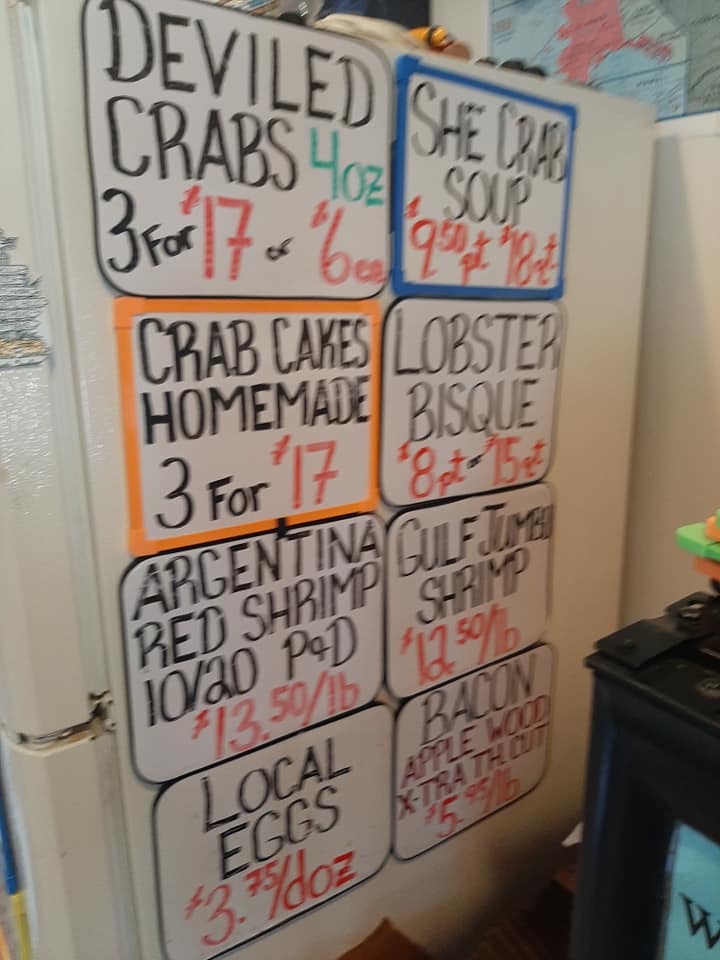 DEVILED
CRABS 4oz
3 For $17 or $6ea
SHE CRAB
SOUP
$9.50 pt $18 qt
CRAB CAKES
HOMEMADE
3 For $17
LOBSTER
BISQUE
$8 pt or $15 qt
ARGENTINA
RED SHRIMP
10/20 P&D
$13.50/lb
GULF JUMBO
SHRIMP
$12.50/lb
LOCAL
EGGS
$3.75/doz
BACON
APPLE WOOD
X-TRA TH. CUT
$5.95/lb
W